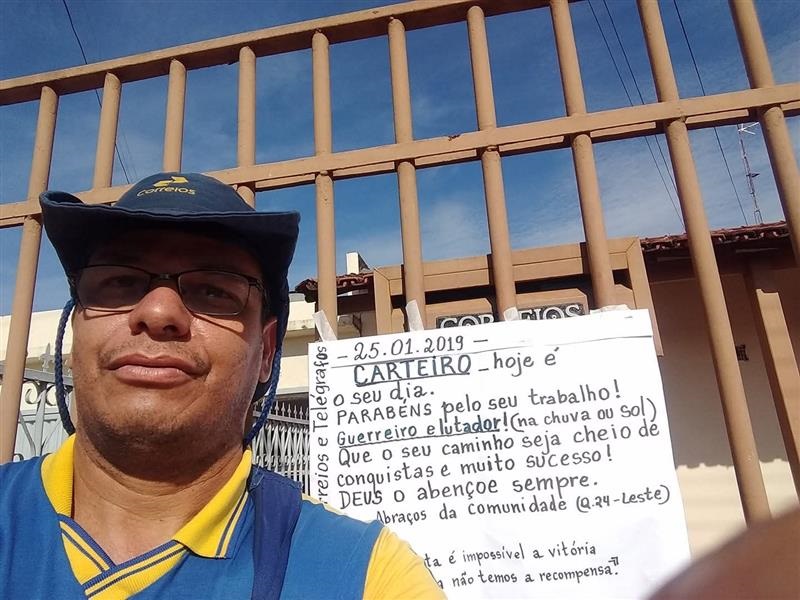 Correios
CORREIOS
- 25.01.2019 -
CARTEIRO - hoje é
o seu dia.
PARABENS pelo seu trabalho!
Guerreiro e lutador! (na chuva ou sol)
Que o seu caminho seja cheio de
conquistas e muito sucesso!
DEUS o abençoe sempre.
Abraços da comunidade (Q.24-Leste)
é impossível a vitória
não temos a recompensa."
rreios e Telégrafos